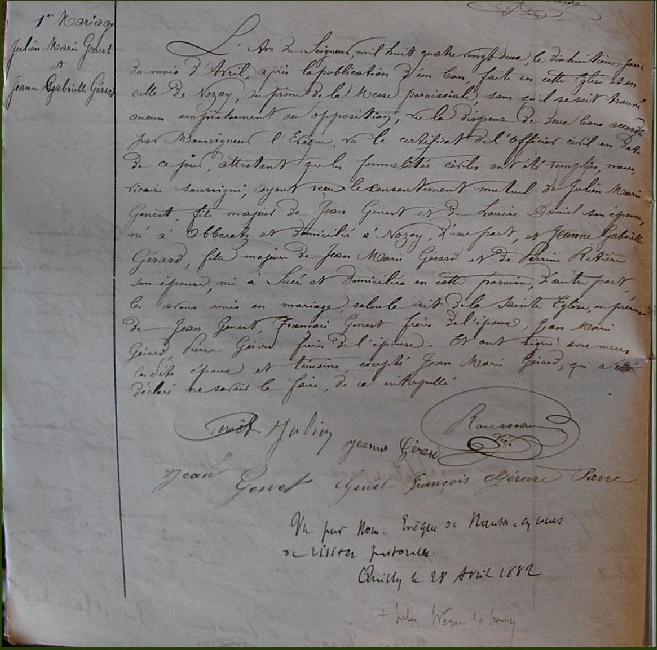 1er Mariage
Julien Marie Genest
et
Jeanne Gabrielle Gérard
L'An du Seigneur, mil huit quatre vingt deux, le dixhuitième jour
du mois d'Avril, après la publication d'un ban faite en cette Eglise et en
celle de Nozay, au prône de la Messe paroissiale, sans qu'il se soit trouvé
aucun empêchement ou opposition, vu la dispense de deux bans accordée
par Monseigneur l'Evêque, vu le certificat de l'officier civil en date
de ce jour, attestant que les formalités civiles ont été remplies, nous,
vicaire soussigné, ayant reçu le consentement mutuel de Julien Marie
Genest, fils majeur de Jean Genest et de Louise Daniel son épouse,
né à Abbaretz et domicilié à Nozay, d'une part, et Jeanne Gabrielle
Gérard, fille majeure de Jean Marie Gérard et de Perrine Retière
son épouse, née à Sucé et domiciliée en cette paroisse, d'autre part
les avons unis en mariage, selon le rit de la Sainte Eglise, en présence
de Jean Genest, François Genest frères de l'époux, Jean Marie
Gérard, Pierre Gérard frères de l'épouse. Et ont signé avec nous
lesdits époux et témoins, excepté Jean Marie Gérard, qui a
déclaré ne savoir le faire, de ce interpellé
Julien Jeanne Gérard Rousseau
Jean Genest Genest François Gérard Pierre
Vu par Nous Evêque de Nantes en cours
de visite pastorale.
le 28 Avril 1882
+ Jules Evêque de